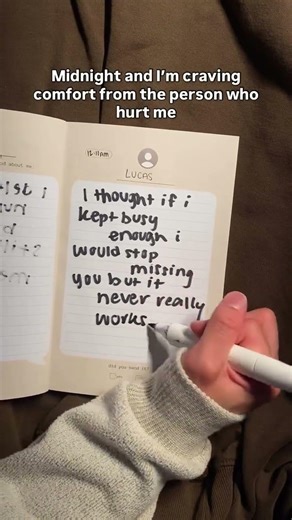 Midnight and I'm craving
comfort from the person who
hurt me
12:11AM
LUCAS
I thought if i
kept busy
enough i
would stop
missing
you but it
never really
works